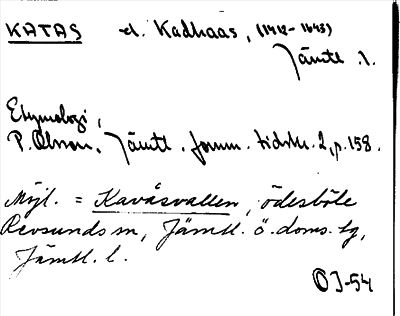 KATAS el. Kadhaas, (1412-1645)
Jämtl. l.
Etymologi,
P. Olsson, Jämtl. fornm. tidskr. 2, p. 158.
Möjl. = Kavåsvallen, ödesböle
Revsunds sn, Jämtl. ö. doms. tg,
Jämtl. l.
OJ-54